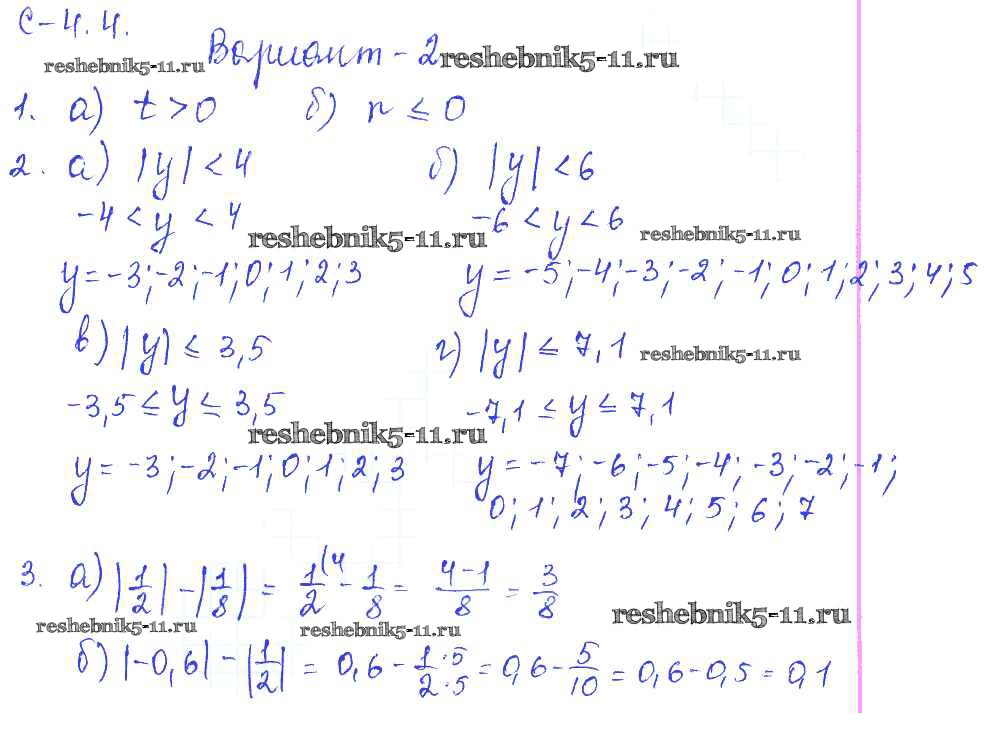 С-4.4.
Вариант-2
reshebnik5-11.ru reshebnik5-11.ru
1. а) t > 0 б) n ≤ 0
2. а) |y| < 4 б) |y| < 6
-4 < y < 4 -6 < y < 6
reshebnik5-11.ru reshebnik5-11.ru
y = -3; -2; -1; 0; 1; 2; 3 y = -5; -4; -3; -2; -1; 0; 1; 2; 3; 4; 5
в) |y| ≤ 3,5 г) |y| ≤ 7,1 reshebnik5-11.ru
-3,5 ≤ y ≤ 3,5 -7,1 ≤ y ≤ 7,1
reshebnik5-11.ru
y = -3; -2; -1; 0; 1; 2; 3 y = -7; -6; -5; -4; -3; -2; -1;
0; 1; 2; 3; 4; 5; 6; 7
3. а) |1/2| - |1/8| = 1/2 (4 - 1/8 = 4-1/8 = 3/8
reshebnik5-11.ru reshebnik5-11.ru reshebnik5-11.ru
б) |-0,6| - |1/2| = 0,6 - 1·5/2·5 = 0,6 - 5/10 = 0,6 - 0,5 = 0,1